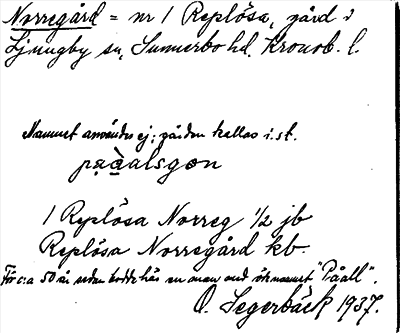 Norregård = nr 1 Replösa, gård i
Ljungby sn, Sunnerbo hd. Kronob. l.
Namnet användes ej; gården kallas i st.
pạɑ̀alsgɵn
1 Replösa Norreg 1/2 jb
Replösa Norregård kb.
För c:a 50 år sedan bodde här en man med öknamnet "Påall".
O. Segerbäck 1937.